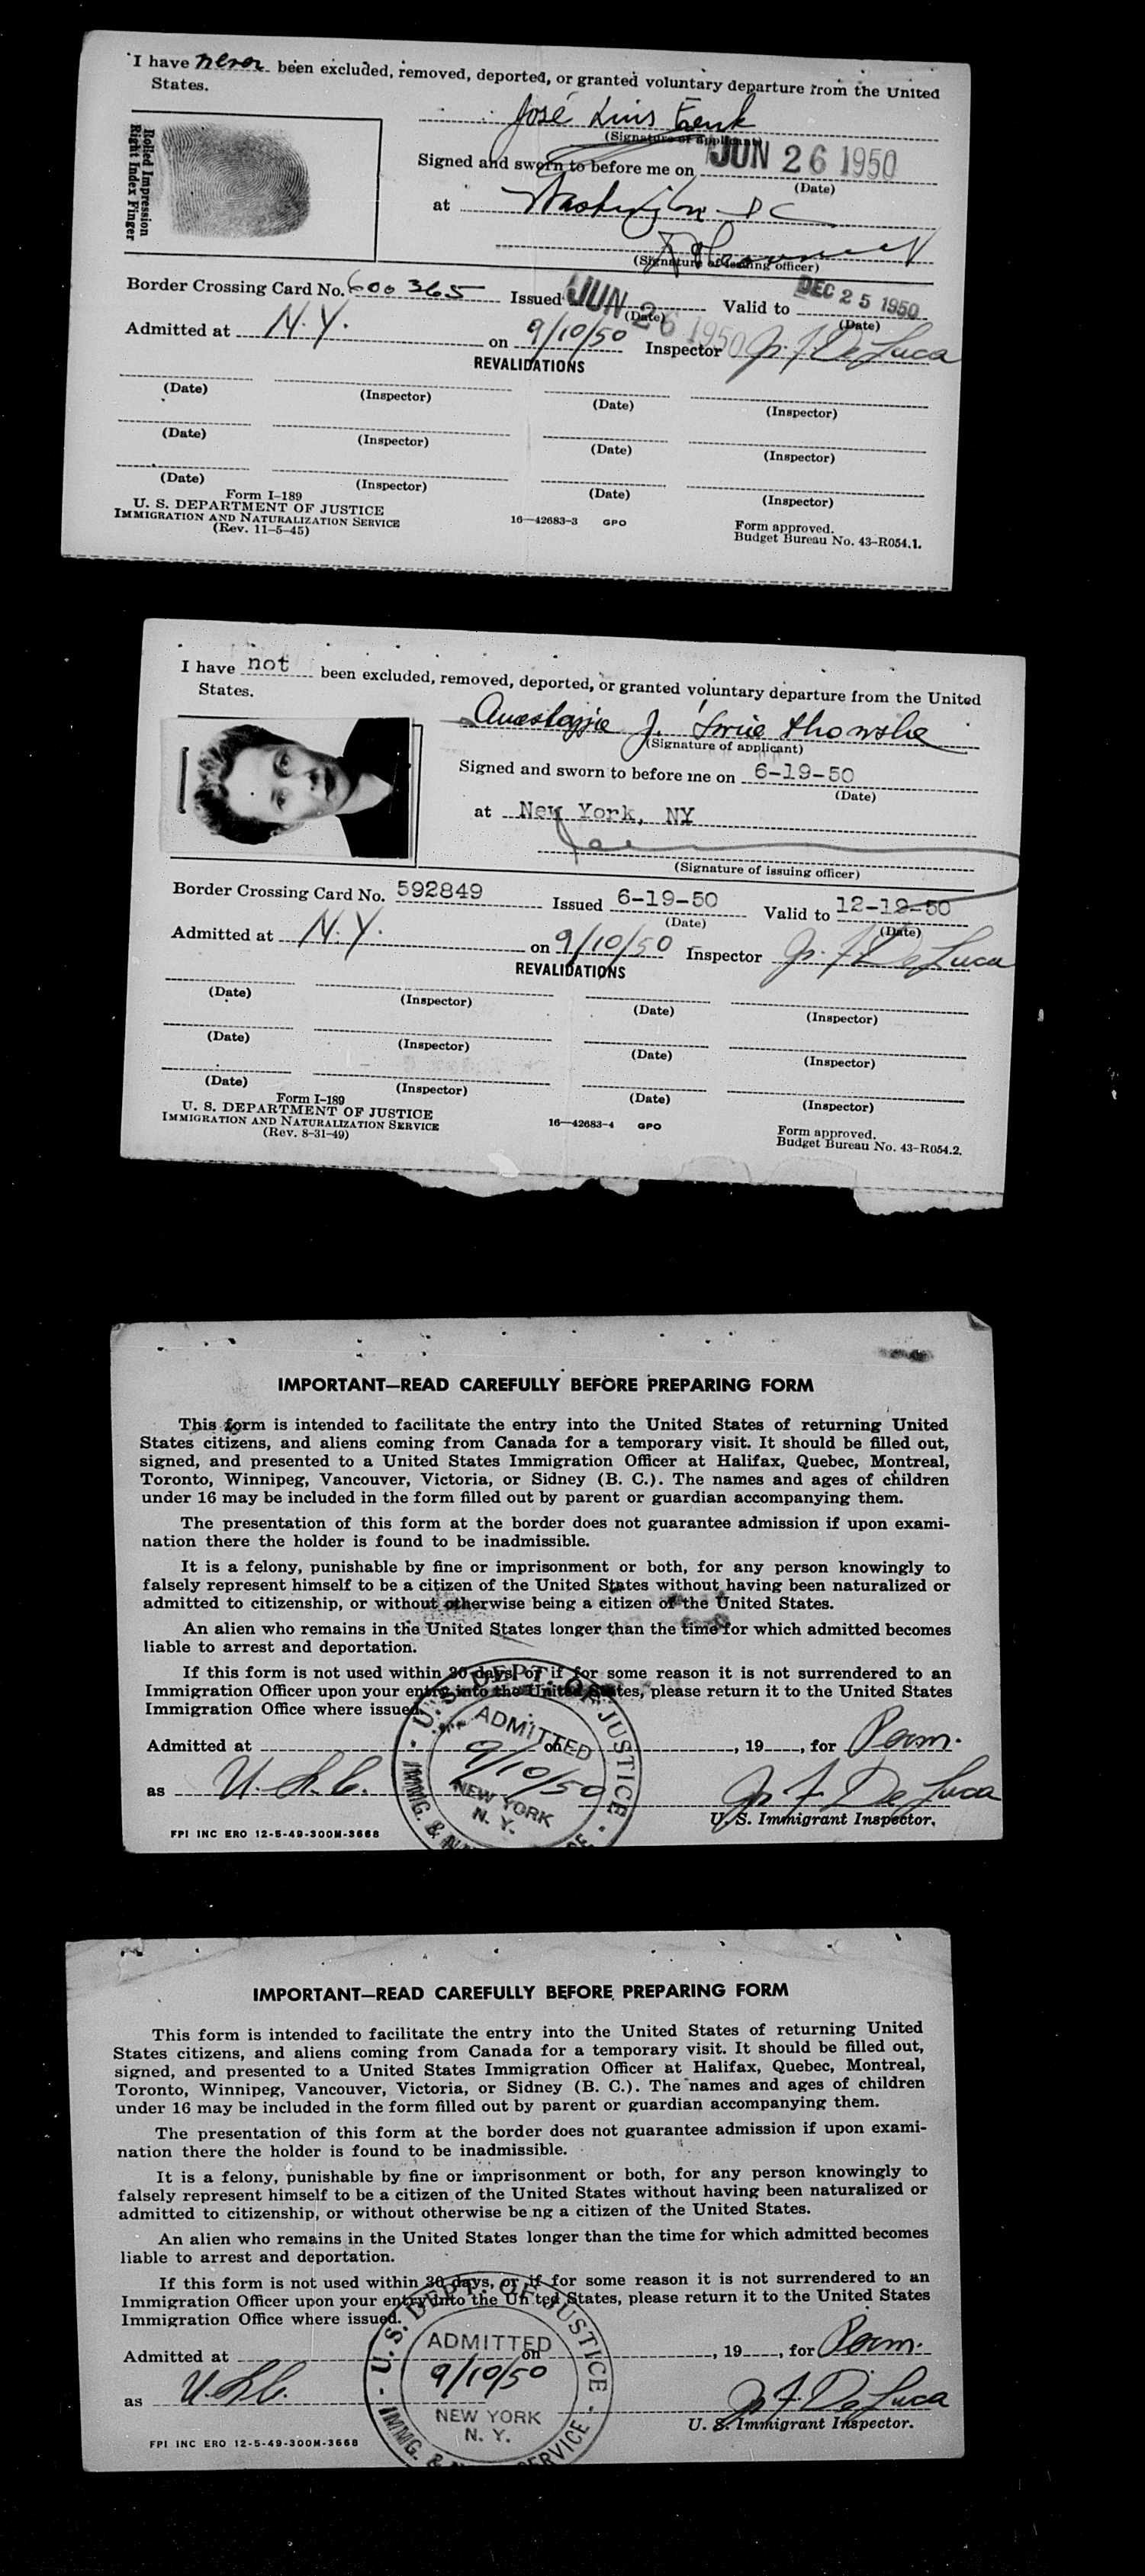 I have never been excluded, removed, deported, or granted voluntary departure from the United
States.
Rolled Impression
Right Index Finger
José Luis
(Signature of applicant)
Signed and sworn to before me on JUN 26 1950
(Date)
at Washington DC
(Signature of issuing officer)
Border Crossing Card No. 600365 Issued JUN 26 1950 Valid to DEC 25 1950
(Date) (Date)
Admitted at N.Y. on 9/10/50 Inspector J. F. De Luca
REVALIDATIONS
(Date) (Inspector) (Date) (Inspector)
(Date) (Inspector) (Date) (Inspector)
(Date) (Inspector) (Date) (Inspector)
Form I-189
U. S. DEPARTMENT OF JUSTICE
IMMIGRATION AND NATURALIZATION SERVICE
(Rev. 11-5-45)
16—42683-3 GPO
Form approved.
Budget Bureau No. 43-R054.1.
I have not been excluded, removed, deported, or granted voluntary departure from the United
States.
J.
(Signature of applicant)
Signed and sworn to before me on 6-19-50
(Date)
at New York, NY
(Signature of issuing officer)
Border Crossing Card No. 592849 Issued 6-19-50 Valid to 12-19-50
(Date) (Date)
Admitted at N.Y. on 9/10/50 Inspector J. F. De Luca
REVALIDATIONS
(Date) (Inspector) (Date) (Inspector)
(Date) (Inspector) (Date) (Inspector)
(Date) (Inspector) (Date) (Inspector)
Form I-189
U. S. DEPARTMENT OF JUSTICE
IMMIGRATION AND NATURALIZATION SERVICE
(Rev. 8-31-49)
16—42683-4 GPO
Form approved.
Budget Bureau No. 43-R054.2.
IMPORTANT—READ CAREFULLY BEFORE PREPARING FORM
This form is intended to facilitate the entry into the United States of returning United
States citizens, and aliens coming from Canada for a temporary visit. It should be filled out,
signed, and presented to a United States Immigration Officer at Halifax, Quebec, Montreal,
Toronto, Winnipeg, Vancouver, Victoria, or Sidney (B. C.). The names and ages of children
under 16 may be included in the form filled out by parent or guardian accompanying them.
The presentation of this form at the border does not guarantee admission if upon exami-
nation there the holder is found to be inadmissible.
It is a felony, punishable by fine or imprisonment or both, for any person knowingly to
falsely represent himself to be a citizen of the United States without having been naturalized or
admitted to citizenship, or without otherwise being a citizen of the United States.
An alien who remains in the United States longer than the time for which admitted becomes
liable to arrest and deportation.
If this form is not used within 30 days, or if for some reason it is not surrendered to an
Immigration Officer upon your entry into the United States, please return it to the United States
Immigration Office where issued.
Admitted at on , 19 , for Perm.
as U.S.C. J. F. De Luca
U. S. Immigrant Inspector.
U. S. DEPT. OF JUSTICE
ADMITTED
9/10/50
NEW YORK
N. Y.
IMMIG. &
FPI INC ERO 12-5-49-300M-3668
IMPORTANT—READ CAREFULLY BEFORE PREPARING FORM
This form is intended to facilitate the entry into the United States of returning United
States citizens, and aliens coming from Canada for a temporary visit. It should be filled out,
signed, and presented to a United States Immigration Officer at Halifax, Quebec, Montreal,
Toronto, Winnipeg, Vancouver, Victoria, or Sidney (B. C.). The names and ages of children
under 16 may be included in the form filled out by parent or guardian accompanying them.
The presentation of this form at the border does not guarantee admission if upon exami-
nation there the holder is found to be inadmissible.
It is a felony, punishable by fine or imprisonment or both, for any person knowingly to
falsely represent himself to be a citizen of the United States without having been naturalized or
admitted to citizenship, or without otherwise be ng a citizen of the United States.
An alien who remains in the United States longer than the time for which admitted becomes
liable to arrest and deportation.
If this form is not used within 30 days, or if for some reason it is not surrendered to an
Immigration Officer upon your entry into the Un ted States, please return it to the United States
Immigration Office where issued.
Admitted at on , 19 , for Perm.
as U.S.C. J. F. De Luca
U. S. Immigrant Inspector.
U. S. DEPT. OF JUSTICE
ADMITTED
9/10/50
NEW YORK
N. Y.
IMMIG. & SERVICE
FPI INC ERO 12-5-49-300M-3668